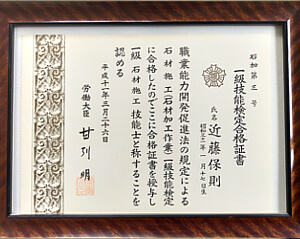 石加第三号
一級技能検定合格証書
氏名 近藤保則
昭和二十一年一月十七日生
職業能力開発促進法の規定による
石材施工(石材加工作業)一級技能検定
に合格したのでここに合格証書を授与し
一級石材施工技能士と称することを
認める
平成十一年三月二十六日
労働大臣 甘利 明